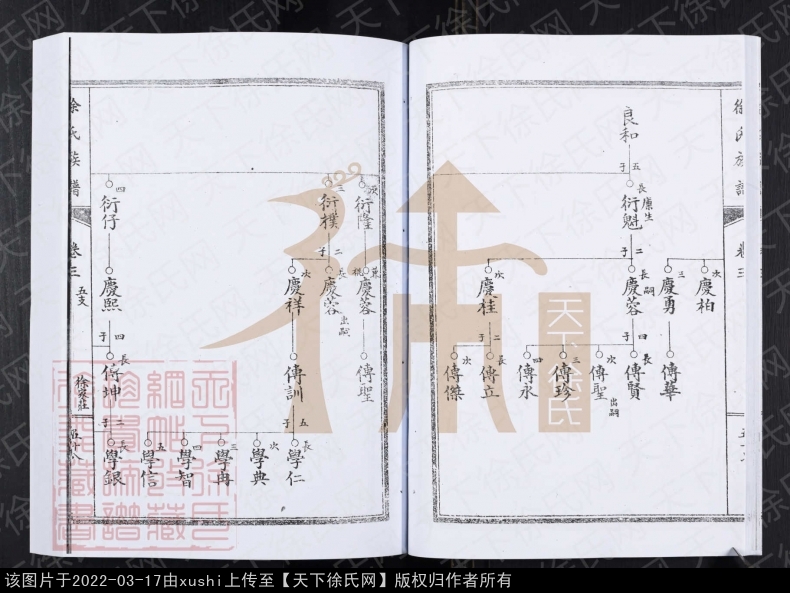 徐氏族譜
卷三
良和
五子
長 廩生 衍魁
二子
次 慶柏
三 慶勇
長嗣 慶蓉
次 慶桂
四子
二子
傳華
長 傳賢
次 傳聖 出嗣
三 傳珍
四 傳永
長 傳立
次 傳傑
次 衍隆
三 衍樸
四 衍仔
二子
兼祧 慶蓉
長 慶蓉 出嗣
次 慶祥
慶熙
四子
傳聖
傳訓
長 傳坤
五子
二子
長 學仁
次 學典
三 學冉
四 學智
五 學信
長 學銀
徐氏族譜
卷三
五支
徐家莊
五十八
天下徐氏
天下徐氏网
该图片于2022-03-17由xushi上传至【天下徐氏网】版权归作者所有